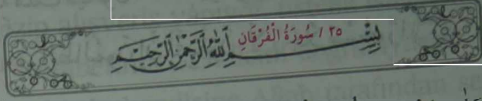 ٢٥ / سُورَةُ الْفُرْقَانِ
بِسْمِ اللهِ الرَّحْمٰنِ الرَّحِيمِ